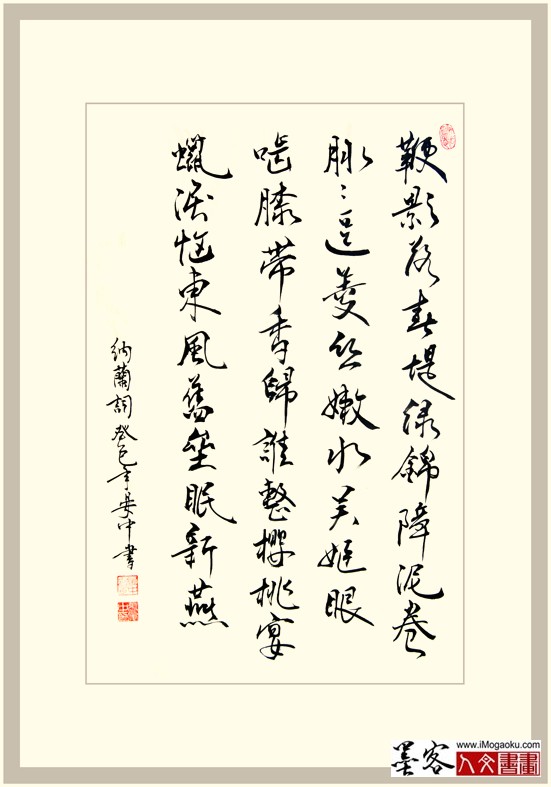 鞭影落春堤绿錦障泥卷
脉〻逗菱丝嫩水吴姬眼
啮膝帶香歸誰整櫻桃宴
蠟淚恼東風舊壘眠新燕
納蘭詞癸巳年中書
墨客
www.iMogaoku.com
人文書畫